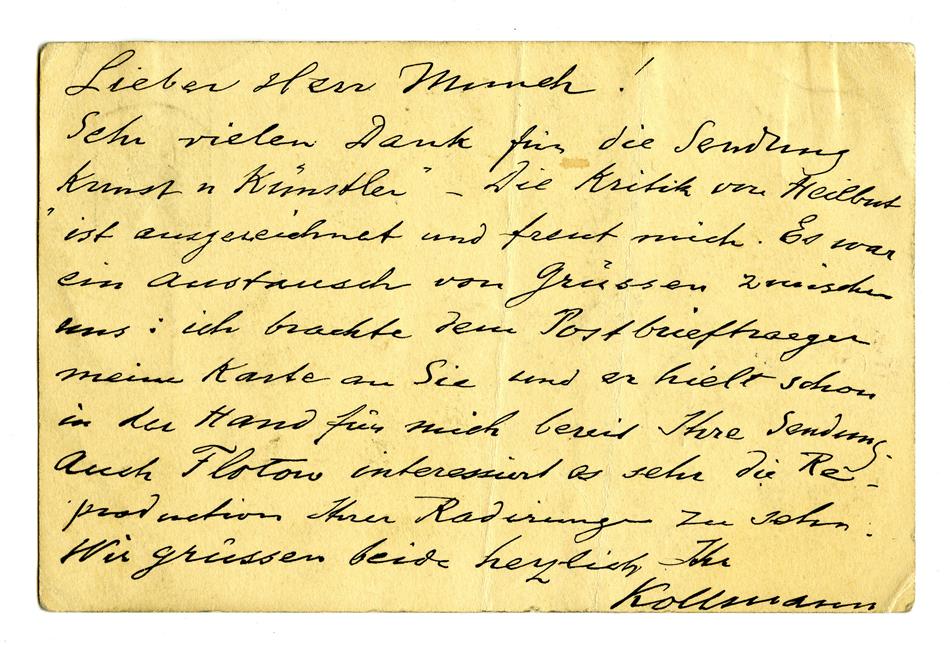 Lieber Herr Munch!
Sehr vielen Dank für die Sendung
Kunst u Künstler" – Die Kritik von Heilbut
"ist ausgezeichnet und freut mich. Es war
ein Austausch von Grüssen zwischen
uns: ich brachte dem Postbrieftraeger
meine Karte an Sie und er hielt schon
in der Hand für mich bereit Ihre Sendung.
Auch Flotow interessiert es sehr die Re-
production Ihrer Radirungen zu sehn.
Wir grüssen beide herzlich Ihr
Kollmann